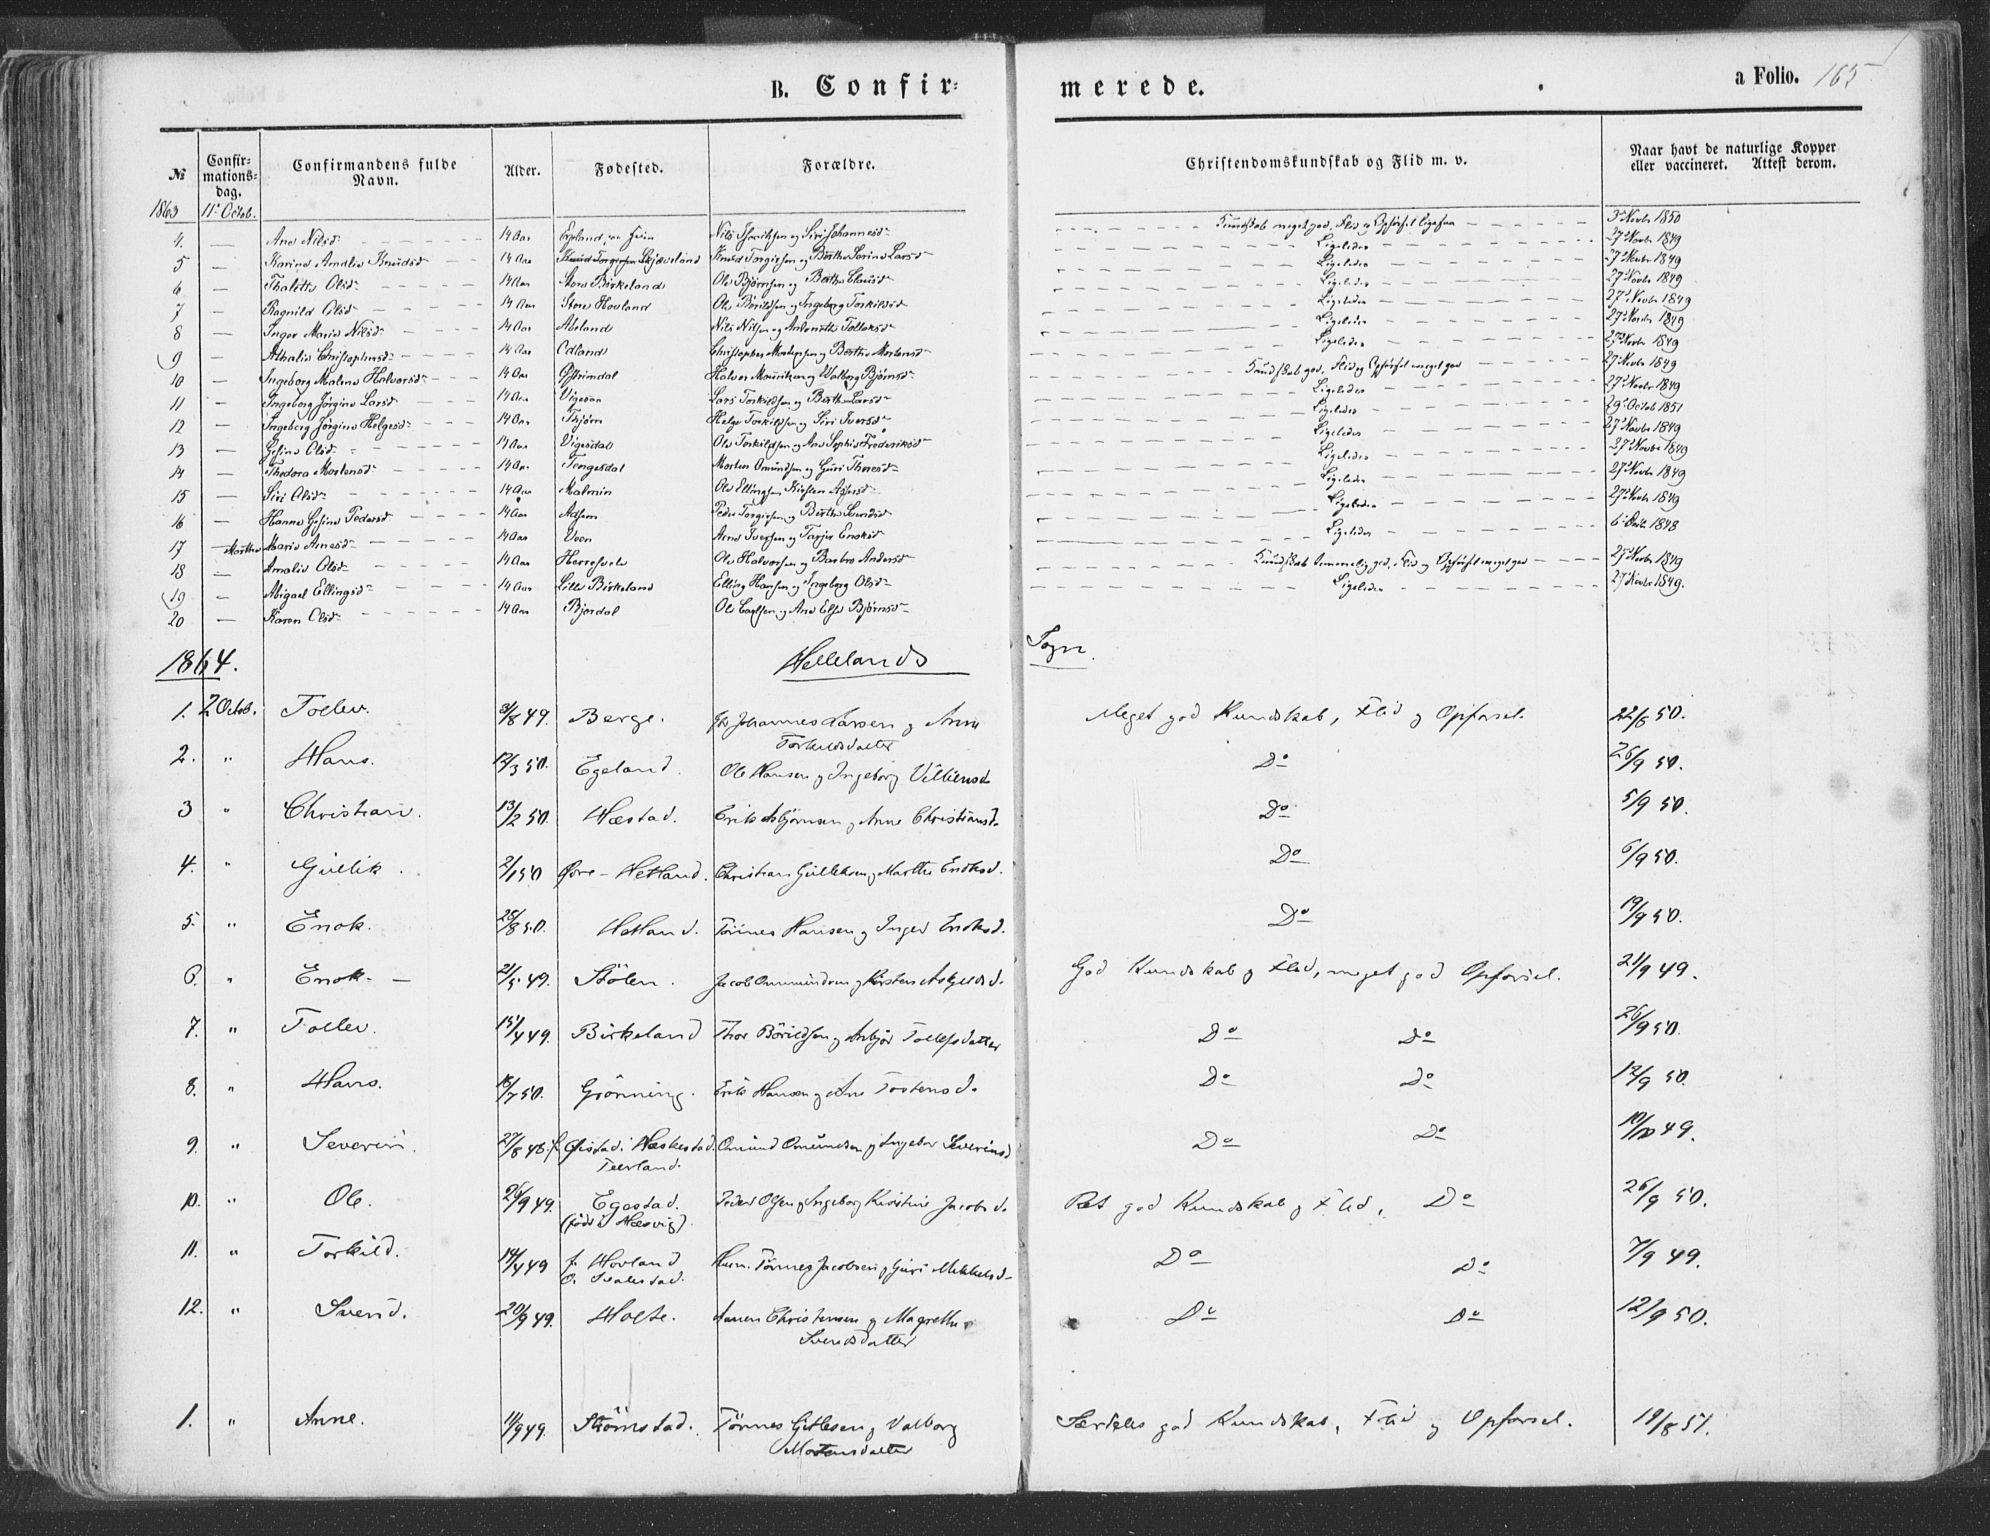 B. Confir-
merede.
a Folio. 165
№
Confir-
mations-
dag.
Confirmandens fulde
Navn.
Alder.
Fødested.
Forældre.
Christendomskundskab og Flid m. v.
Naar havt de naturlige Kopper
eller vaccineret. Attest derom.
1863 11te Octob.
4. — Ane Nilsd 14 Aar Nils og Siri Johannesd Kundskab meget god, Flid og Opførsel ligesaa 3 Novbr 1850
5 — Karine Amalie Knudsd 14 Aar Skjæveland Knud Torgersen og Berthe Sorine Larsd Ligeledes 27 Novbr 1849
6 — Thalette Olsd 14 Aar Store Birkeland Ole Bjørnsen og Berthe Clausd Ligeledes 27 Novbr 1849
7 — Ragnild Olsd 14 Aar Store Hovland Ole Børildsen og Ingeborg Torkildsd Ligeledes 27 Novbr 1849
8 — Inger Marie Nilsd 14 Aar Aasland Nils Nilsen og Antonette Tollaksd Ligeledes 27 Novbr 1849
9 — Athalie Christophersd 14 Aar Odland Christopher Mortensen og Berthe Mortensd Ligeledes 27 Novbr 1849
10 — Ingeborg Malene Halvorsd 14 Aar Halvor Mauritsen og Valborg Bjørnsd Kundskab god, Flid og Opførsel meget god 27 Novbr 1849
11 — Ingeborg Jørgine Larsd 14 Aar Vigesaa Lars Torkildsen og Berthe Larsd Ligeledes 27 Novbr 1849
12 — Ingeborg Jørgine Helgesd 14 Aar Thjørn Helge Torkildsen og Siri Iversd Ligeledes 29 Octob 1851
13 — Gesine Olsd 14 Aar Vigesdal Ole Torkildsen og Ane Sophie Frederiksd Ligeledes 27 Novbr 1849
14 — Thedora Mortensd 14 Aar Tengesdal Morten Omundsen og Guri Thoresd Ligeledes 27 Novbr 1849
15 — Siri Olsd 14 Aar Malmin Ole Ellingsen Ligeledes 27 Novbr 1849
16 — Hanne Gesine Pedersd 14 Aar Peder Torgersen og Berthe Svendsd Ligeledes 27 Novbr 1849
17 — Marthe Marie Arnesd 14 Aar Veen Arne Iversen og Tarjer Enoksd Ligeledes 6 Octb 1848
18 — Amalie Olsd 14 Aar Ole Halvorsen og Barbro Andersd Kundskab temmelig god, Flid og Opførsel meget god 27 Novbr 1849
19 — Abigael Ellingsd 14 Aar Lille Birkeland Elling Hansen og Ingeborg Olsd Ligeledes 27 Novbr 1849.
20 — Karen Olsd 14 Aar Bjordal Ole Carlsen og Ane Else Bjørnsd
1864. Hellelands Sogn.
1. 2 Octob. Tollev. 31/8 49. Berge. Johannes Larsen og Anne Meget god Kundskab, Flid og Opførsel. 22/8 50.
Torkildsdatter
2. " Hans. 12/3 50. Egeland. Ole Hansen og Ingeborg Villiensd. Do 26/9 50.
3 " Christian. 13/2 50. Hæstad. Erik Asbjörnsen og Anne Christiansd. Do 5/9 50.
4. " Gullik. 2/1 50 Øvre-Hetland. Christian Gulliksen og Marthe Endresd. Do 6/9 50.
5. " Enok. 25/8 50. Hetland. Tönnes Hansen og Inger Endresd. Do 19/9 50.
6. " Enok. — 21/5 49. Stölen. Jacob Ommundsen og Kirsten Askjelsd. God Kundskab og Flid, meget god Opførsel. 21/9 49.
7. " Tollev. 15/4 49. Birkeland Thor Börildsen og Asbjør Tollefsdatter Do Do 26/9 50.
8. " Hans. 16/7 50. Grönning. Erik Hansen og Ane Tostensd. Do Do 12/9 50.
9. " Severin. 27/8 48. f. Öistad. Heskestad. Omund Omundsen og Ingebor Severinsd Do Do 10/10 49.
Teerland.
10. " Ole. 25/9 49. Egestad. Peder Olsen og Ingeborg Kirstine Jacobsd. Ret god Kundskab og Flid, Do 26/9 50.
(född i Hæsvig).
11. " Torkild. 14/4 49 f. Hovland Husm. Tönnes Jacobsen og Guri Mikkelsd. Do Do 7/9 49.
12. " Svend. 20/9 49. Holte. Christensen og Magrethe Do Do 12/9 50.
Svendsdatter
1. " Anne. 11/9 49. Strömstad. Tönnes Gitlesen og Valborg Særdeles god Kundskab, Flid og Opførsel. 19/8 51.
Mortensdatter